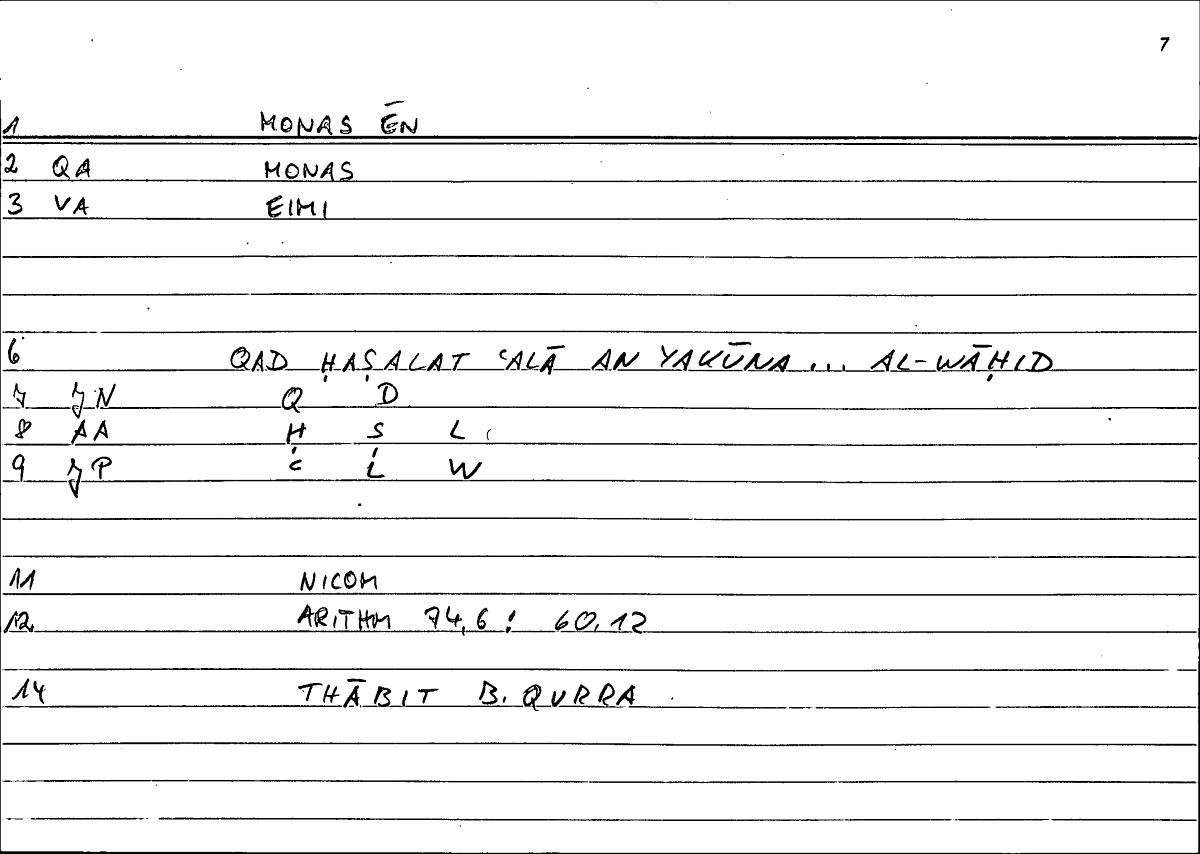 7
1 MONAS ĒN
2 QA MONAS
3 VA EIMI
6 QAD ḤAṢALAT ʿALĀ AN YAKŪNA ... AL-WĀḤID
7 JN Q D
8 AA Ḥ Ṣ L
9 JP ʿ L W
11 NICOM
12 ARITHM 74,6 : 60.12
14 THĀBIT B. QURRA